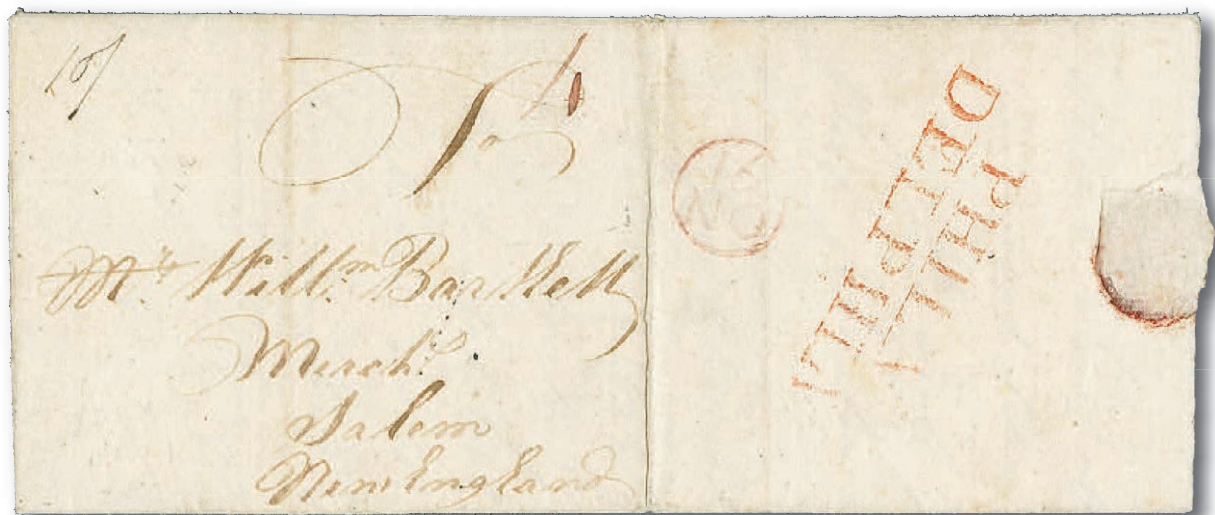 To
Mr. Willm. Bartlett
Mercht.
Salem
New England
PHILA
DELPHIA